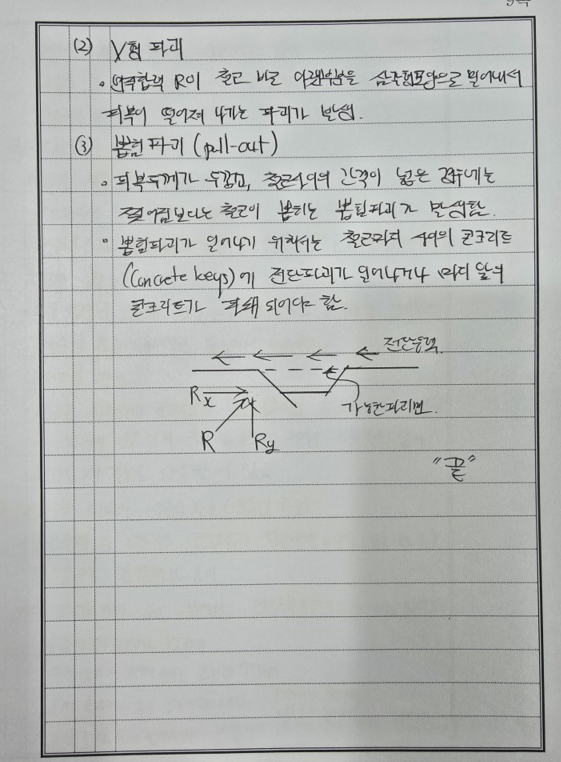 (2) V형 파괴
• 반경합력 R이 철근 바로 아랫부분을 삼각형모양으로 밀어내서
피복이 떨어져 나가는 파괴가 발생.
(3) 뽑힘파괴 (pull-out)
• 피복두께가 두껍고, 철근사이의 간격이 넓은 경우에는
찢어짐보다는 철근이 뽑히는 뽑힘파괴가 발생함.
• 뽑힘파괴가 일어나기 위해서는 철근마디 사이의 콘크리트
(Concrete keys)에 전단파괴가 일어나거나 마디 앞의
콘크리트가 파쇄 되어야 함.
전단응력.
Rx
가능한파괴면.
R Ry
"끝"